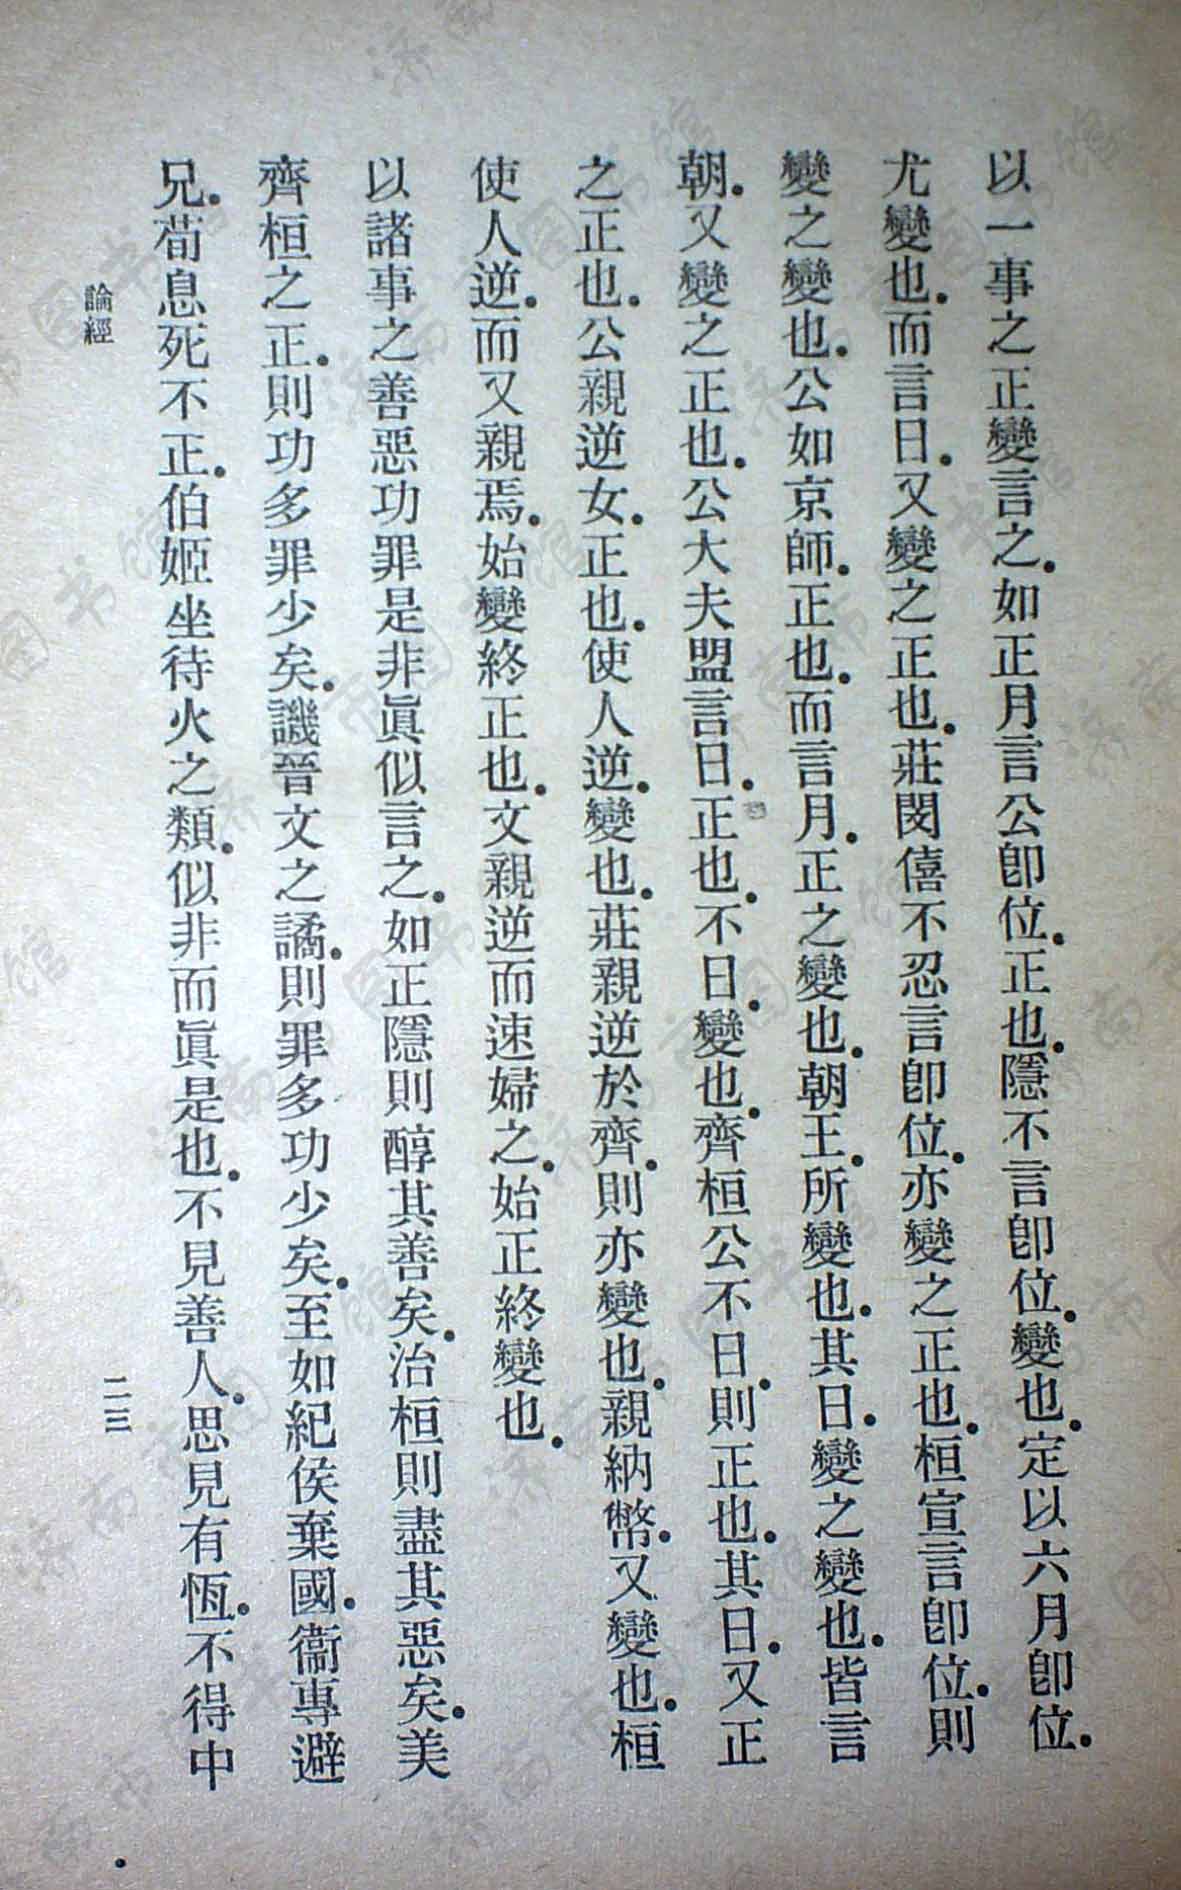 以一事之正變言之.如正月言公卽位.正也.隱不言卽位.變也.定以六月卽位.
尤變也.而言日.又變之正也.莊閔僖不忍言卽位.亦變之正也.桓宣言卽位.則
變之變也.公如京師.正也.而言月.正之變也.朝王.所變也.其日.變之變也.皆言
朝.又變之正也.公大夫盟言日.正也.不日.變也.齊桓公不日.則正也.其日.又正
之正也.公親逆女.正也.使人逆.變也.莊親逆於齊.則亦變也.親納幣.又變也.桓
使人逆.而又親焉.始變終正也.文親逆而速婦之.始正終變也.
以諸事之善惡功罪是非眞似言之.如正隱則醇其善矣.治桓則盡其惡矣.美
齊桓之正.則功多罪少矣.譏晉文之譎.則罪多功少矣.至如紀侯棄國.衞專避
兄.荀息死不正.伯姬坐待火之類.似非而眞是也.不見善人.思見有恆.不得中
論經
二三